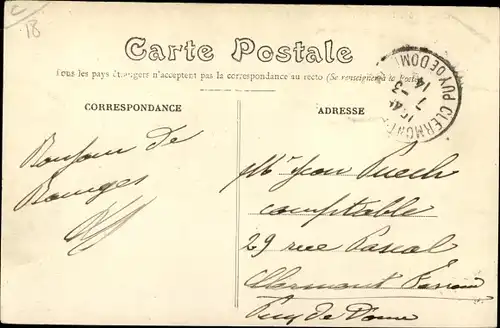 C
18
Carte Postale
Tous les pays étrangers n'acceptent pas la correspondance au recto (Se renseigner à la Poste)
CORRESPONDANCE
ADRESSE
CLERMONT
PUY DE DOME
7 - 3
14
Bonjour de
Bourges
Mr Jean Puech
comptable
29 rue Pascal
Clermont Ferrand
Puy de Dome